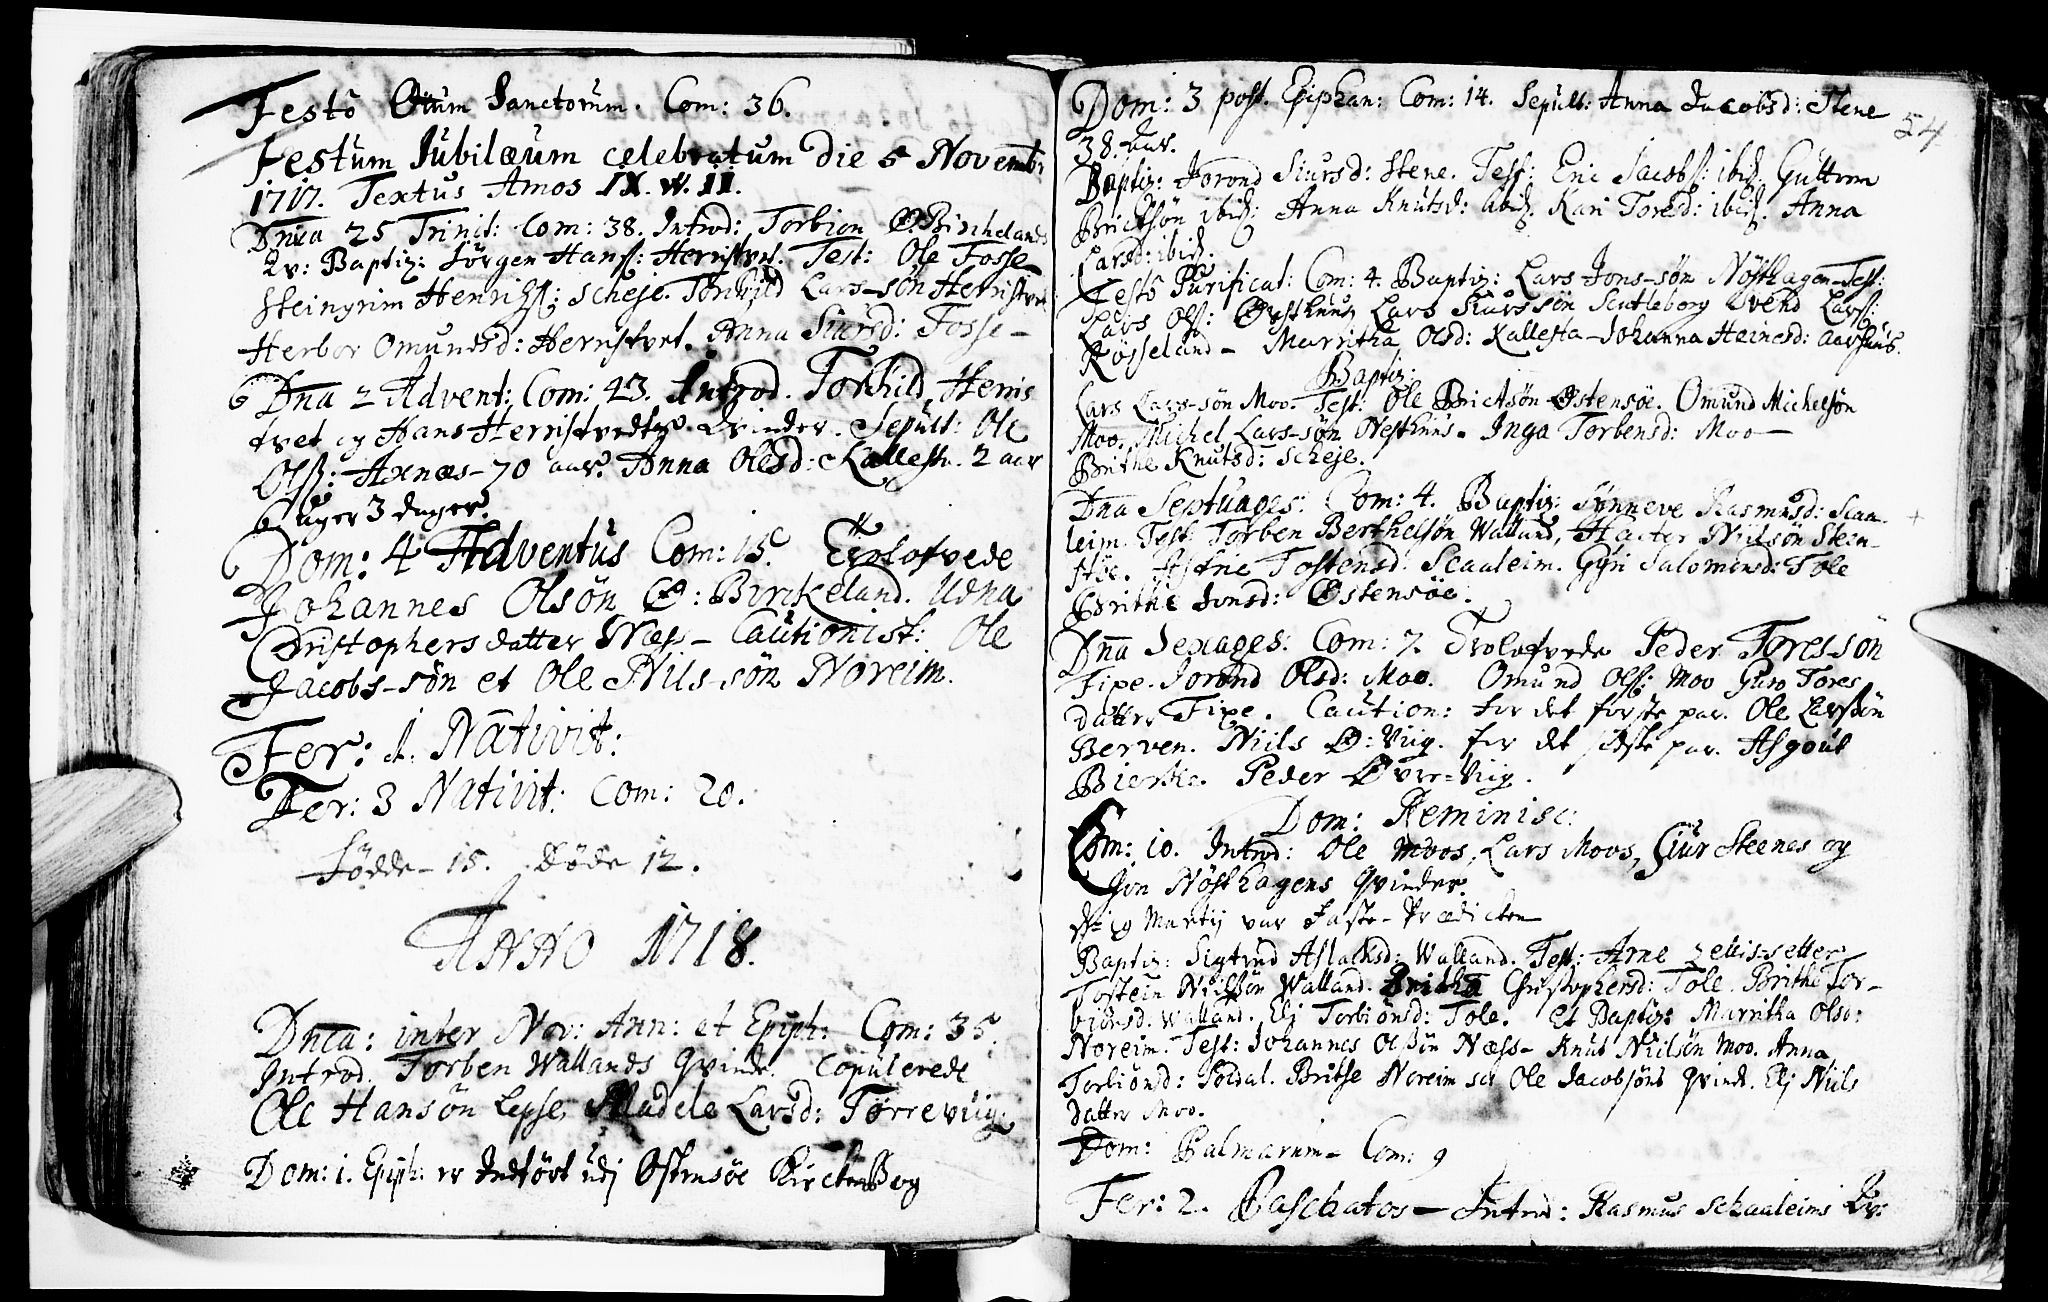 Festo Oĩum Sanctorum. Com: 36.
Festum Jubilæum celebratum die 5 Novemb:
1717. Textus Amos IX. w. 11.
Dnica 25 Trinit: Com: 38. Introd: Torbiøn Ø. Birchelands
Qv: Baptiz: Jørgen Hanß: Herristvet. Test: Ole Fosse
Steingrim Henrichß: Scheje. Torkild Lars-søn Herristvet
Herbor Omundsd: Herristvet. Anna Siursd: Fosse-
Dna 2 Advent: Com: 43. Introd. Torkild Herris
tvet og Hans Herristvedts Qvinder. Sepult: Ole
Olß: Axnæs- 70 aar. Anna Olsd: Kallestæ. 2 aar
6 uger 3 dager.
Dom: 4 Adventus Com: 15. Trolofvede
Johannes Olsøn Ø: Birckeland. Udna
Christophersdatter Næss- Cautionist: Ole
Jacobs-søn et Ole Nils-søn Noreim.
Fer: 1. Nativit:
Fer: 3 Nativit: Com: 20.
Fødde- 15. Døde 12.
ANNO 1718.
Dnica: inter Nov: Ann: et Epiph: Com: 35.
Introd. Torben Wallands Qvinde. Copulerede
Ole Hansøn Lepsø, Madele Larsd: Tørreviig.
Dom: 1. Epiph: er Indført udj Østensøe KirckeBog
54
Dom: 3 post. Epiphan: Com: 14. Sepult: Anna Jacobsd: Stene
38. aar.
Baptiz: Jorond Siursd: Stene. Test: Eric Jacobß: ibid. Guttorm
Brictsøn ibid: Anna Knutsd: ibid. Kari Toresd: ibid. Anna
Larsd: ibid.
Festo Purificat: Com: 4. Baptiz: Lars Jons-søn Nøsthagen Test:
Lars Olß: Øvsthuus, Lars Siurssøn Scutleborg Svend Larß:
Røsseland- Marritha Olsd: Kallestæ- Johanna Heinesd: Aarhuus.
Baptiz:
Lars Lars-søn Moo. Test: Ole Brictsøn Østensøe. Omund Michelsøn
Moo. Michel Lars-søn Nesthuus. Inga Torbensd: Moo-
Brithe Knutsd: Scheje.
Dna Septuages: Com: 4. Baptiz: Synneve Rasmusd: Scaa-
leim. Test: Torben Berthelsøn Walland, Niilsøn Steen-
støe. Tostensd: Scaaleim. Gyri Salomonsd: Tole
Brithe Jonsd: Østensøe.
Dña Sexages: Com: 7. Trolofvede Peder Tores-søn
Fixe. Jorond Olsd: Moo. Omund Olß: Moo Guro Tores
datter Fixe. Caution: for det første par. Ole Larssøn
Berven. Niils Ø: Viig. for det sidste par. Asgout
Bierke. Peder Øvre-Viig.
Dom: Reminisc:
Com: 10. Introd: Ole Moos, Lars Moos, Siur Steenes og
Jon Nøsthagens Qvinder.
d. 19 Martij var Faste-Prædicken
Baptiz: Sigtrud Aslachsd: Walland. Test: Arne
Tostein Niilssøn Walland. Britha Christophersd: Tole. Brithe Tor-
biønsd. Walland. Elj Torbiønsd: Tole. Et Baptiz: Marritha Olsd:
Noreim. Test: Johannes Olssøn Næss- Knut Niilsøn Moo. Anna
Torbiønsd: Soldal. Brithe Noreim Ole Jacobsøns Qvinde. Elj Niils
datter Moo.
Dom: Palmarum- Com: 9
Fer: 2. Paschatos- Introd: Rasmus Schaaleims Qv: